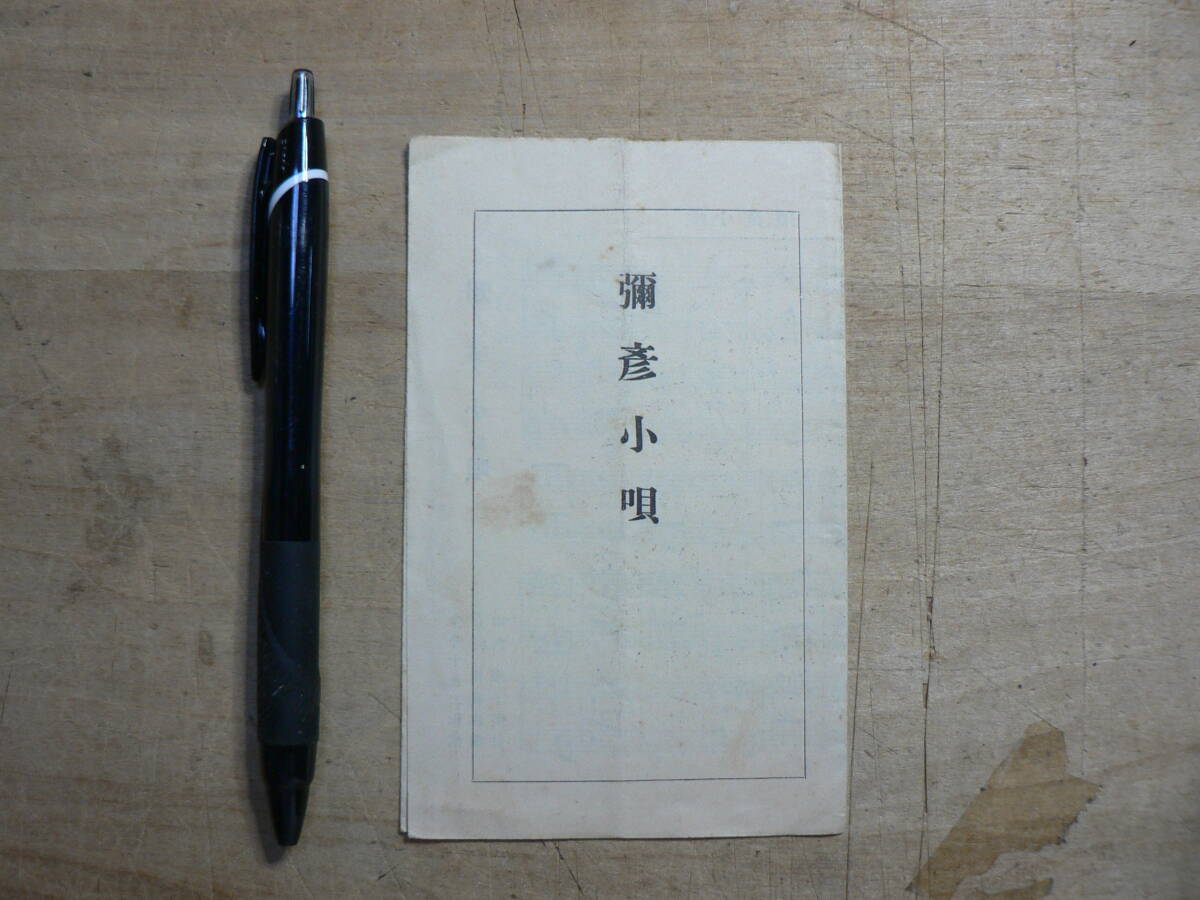 彌彦小唄